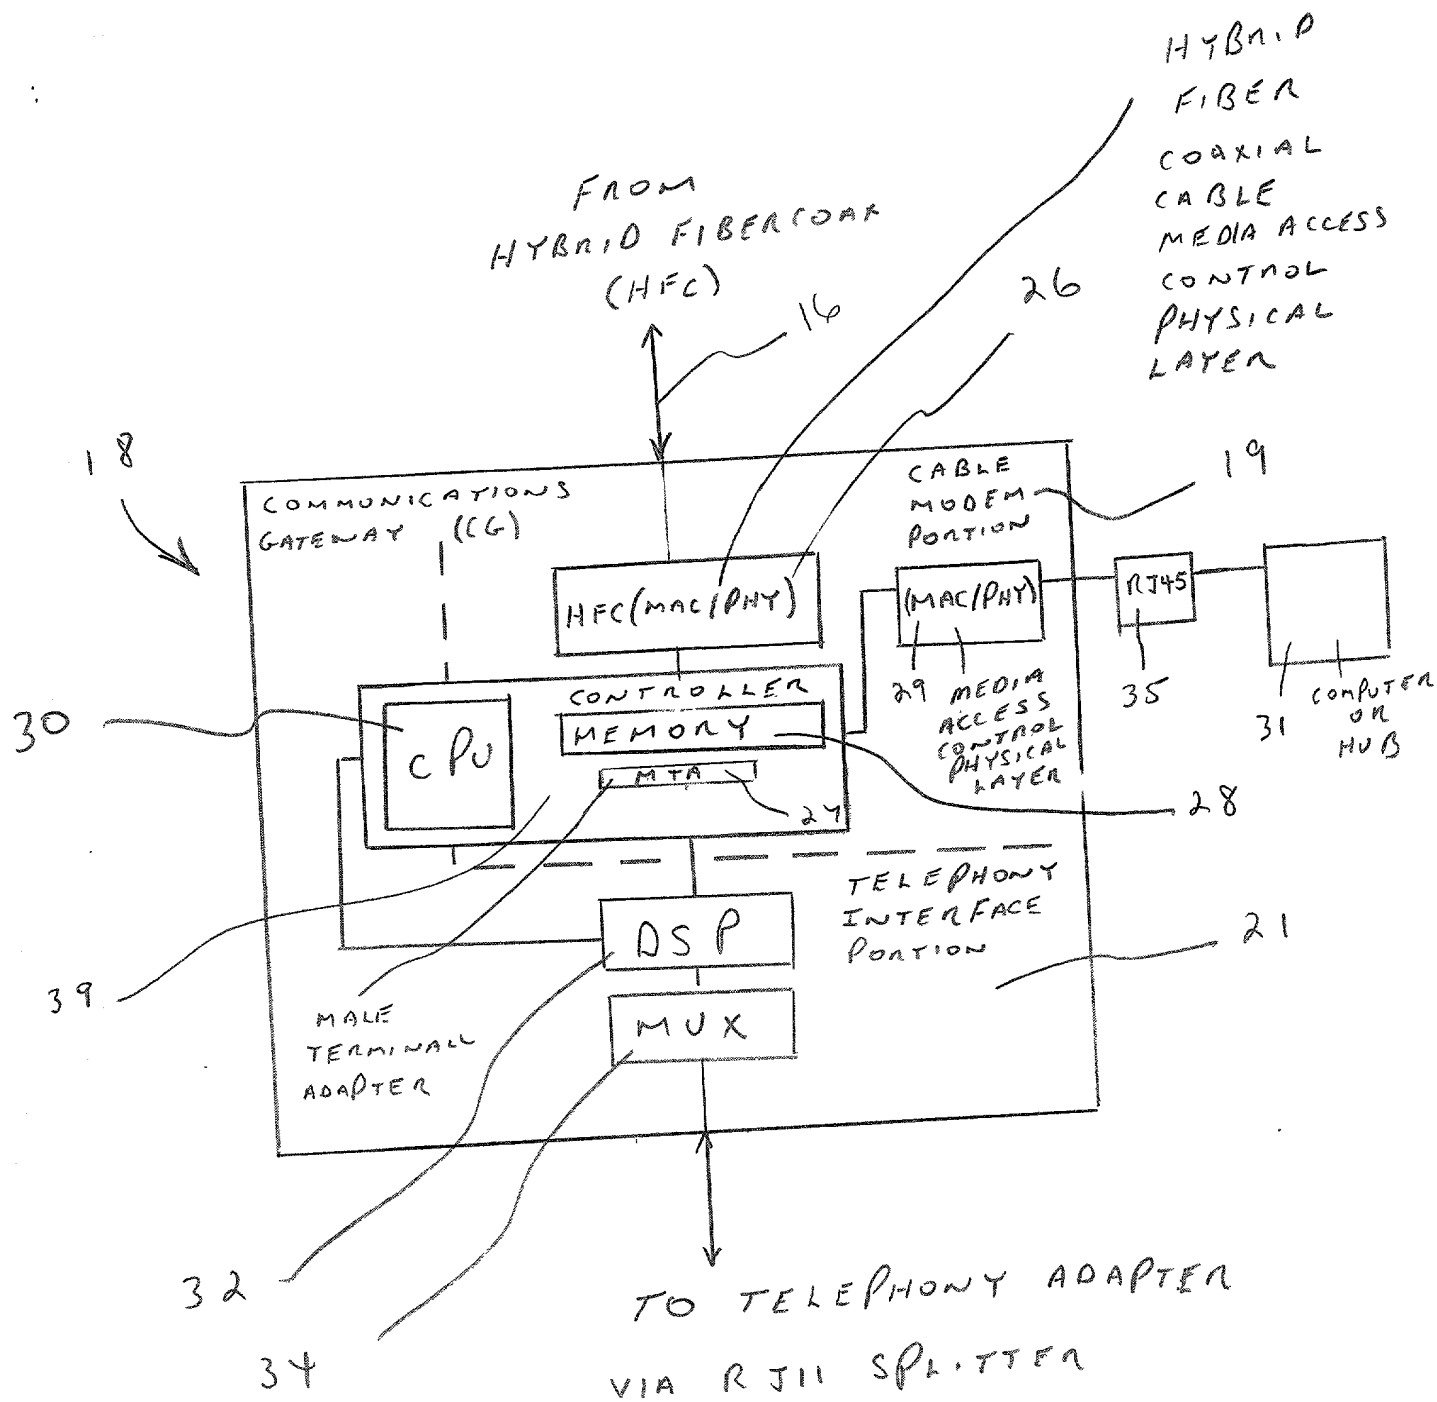 HYBRID
FIBER
COAXIAL
CABLE
MEDIA ACCESS
CONTROL
PHYSICAL
LAYER
FROM
HYBRID FIBERCOAX
(HFC)
16
26
18
COMMUNICATIONS
GATEWAY (CG)
CABLE
MODEM
PORTION
19
HFC(MAC/PHY)
(MAC/PHY)
RJ45
29
MEDIA
ACCESS
CONTROL
PHYSICAL
LAYER
35
31
COMPUTER
OR
HUB
30
CONTROLLER
CPU
MEMORY
MTA
27
28
TELEPHONY
INTERFACE
PORTION
21
DSP
39
MALE
TERMINALL
ADAPTER
MUX
32
34
TO TELEPHONY ADAPTER
VIA RJ11 SPLITTER